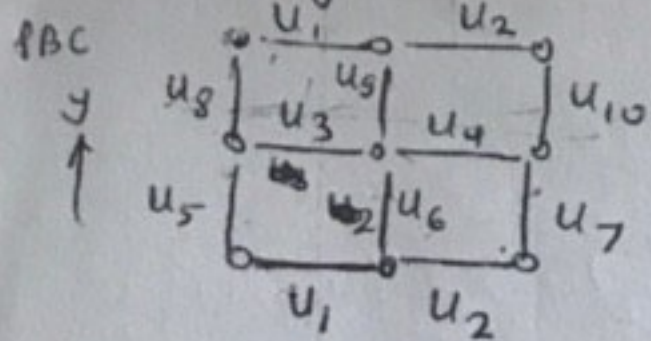 PBC U₁ U₂
y U₈ U₉ U₁₀
U₃ U₄
U₅ U₆ U₇
U₁ U₂